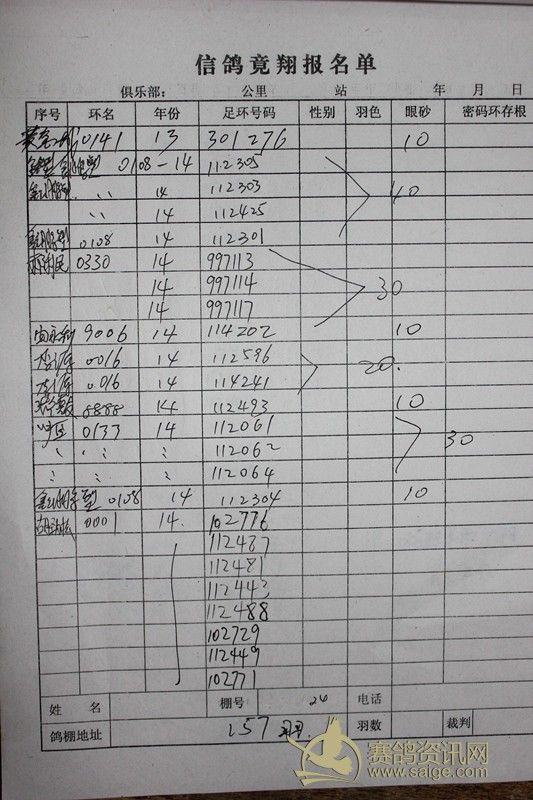 信鸽竟翔报名单
俱乐部： 公里 站 年 月 日
序号 环名 年份 足环号码 性别 羽色 眼砂 密码环存根
0141 13 301276 10
0108-14 112305
14 112303 40
14 112425
0108 14 112301
0330 14 997113
14 997114 30
14 997117
9006 14 114202 10
0016 14 112596 20.
0016 14 114241
8888 14 112493 10
0133 14 112061
112062 30
112064
0108 14 112304 10
0001 14 102776
112487
112481
112443
112488
102729
112449
102771
姓名 棚号 24 电话
鸽棚地址 157 羽数 裁判
赛鸽资讯网
www.saige.com